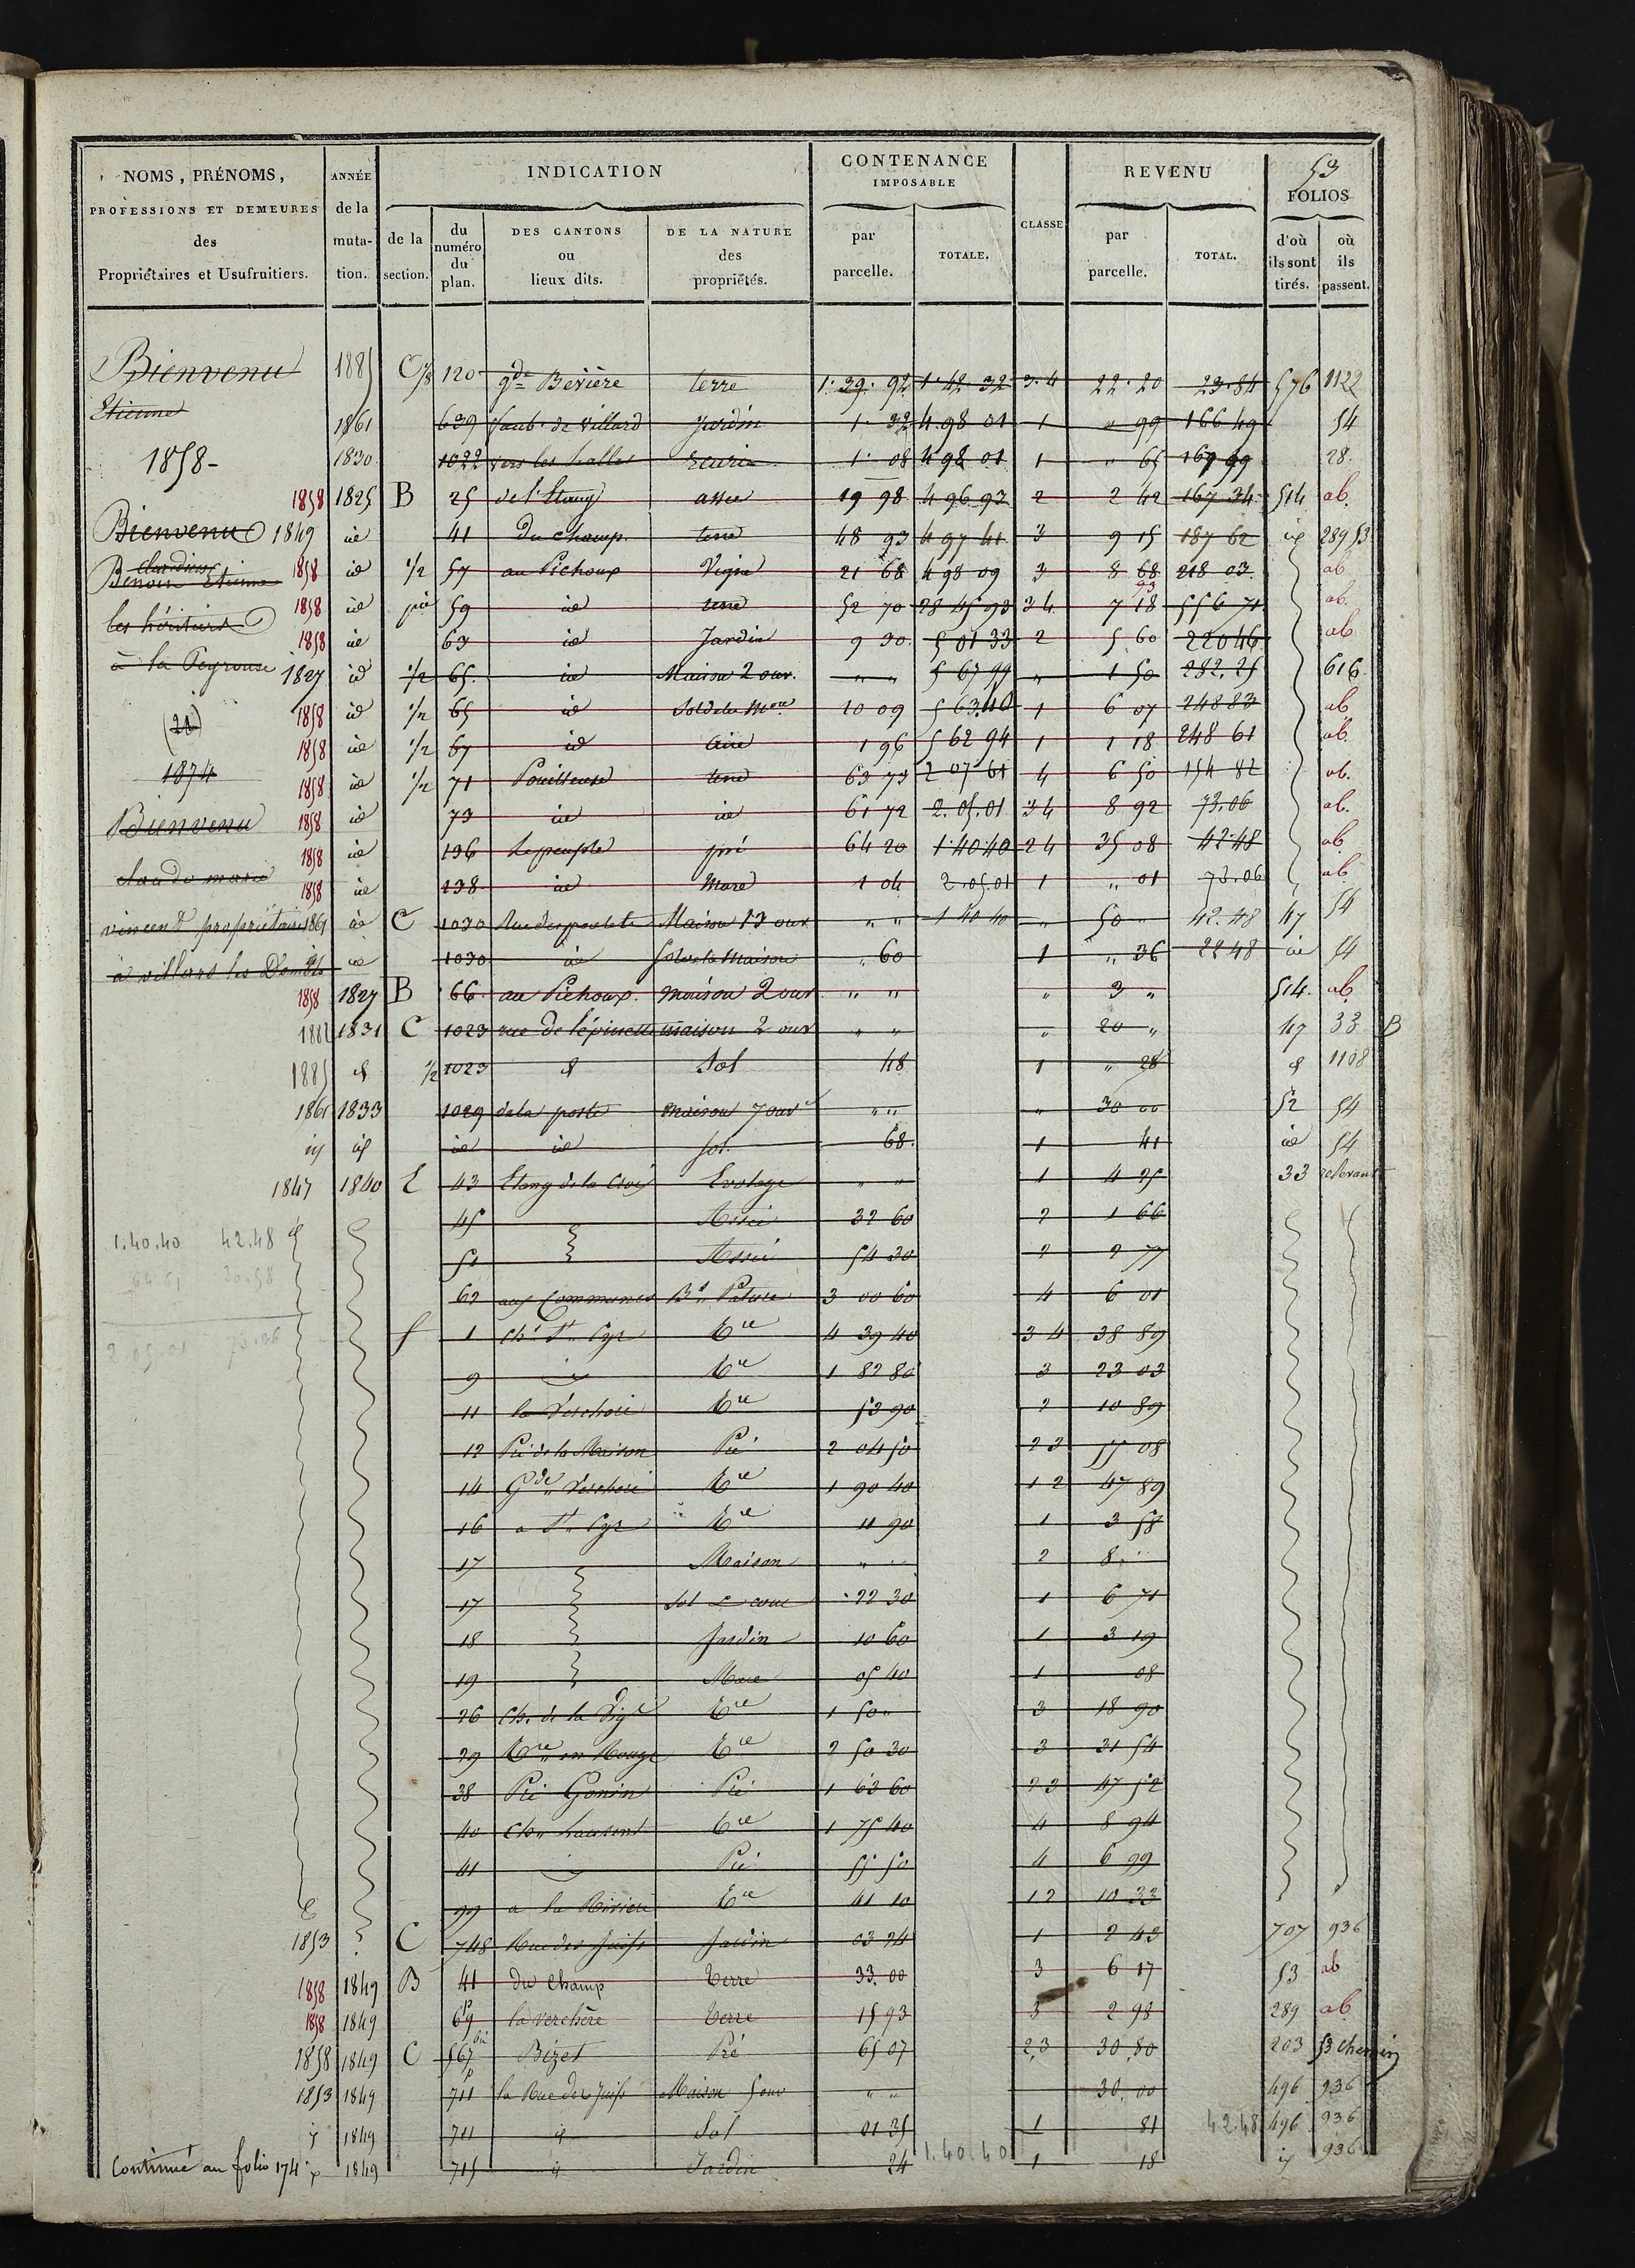 53
NOMS, PRÉNOMS, PROFESSIONS ET DEMEURES des Propriétaires et Usufruitiers.
ANNÉE de la mutation.
INDICATION
de la section.
du numéro du plan.
DES CANTONS ou lieux dits.
DE LA NATURE des propriétés.
CONTENANCE IMPOSABLE
par parcelle.
TOTALE.
CLASSE
REVENU
par parcelle.
TOTAL.
FOLIOS
d'où ils sont tirés.
où ils passent.
Bienvenu 1885 C 120 gde Bérière terre 1.39.92 1.42.32 3.4 22.20 23.84 576 1122
Etienne 1861 639 faub. de Villard Jardin 1.32 4 98 01 1 " 99 166 49 54
1858 - 1830 1022 vers les halles Ecurie 1.08 4 98 01 1 " 65 167 99 28
1858 1825 B 25 de l'Etang assec 19 98 4 96 93 2 2 42 167 34 514 ab.
Bienvenu 1849 id 41 du champ terre 48 93 4 97 41 3 9 15 187 62 id 289 53
Benoit Etienne 1858 id 1/2 57 au Pichoux Vigne 21 68 4 98 09 3 8 68 218 03 ab
les héritiers 1858 id 59 id terre 52 70 28 45 93 34 7 18 556 71 ab.
1858 id 63 id Jardin 9 30 5 01 33 2 5 60 220 46 ab
à la Peyrouse 1827 id 1/2 65 id Maison 2 ouv. " " 5 67 99 " 1 50 282.25 616
1858 id 1/2 65 id Sol de la Mon 10 09 5 63 40 1 6 07 248 83 ab
1858 id 1/2 67 id Aire 1 96 5 62 94 1 1 18 248 61 ab.
1874 1858 id 1/2 71 Pouilleuse terre 63 73 2 07 61 4 6 50 154 82 ab.
Bienvenu 1858 id 73 id id 61 72 2.05.01 34 8 92 73.06 ab.
1858 id 136 Le peuple pré 64 20 1.40.40 24 35 08 42.48 ab
claude marie 1858 id 138 id Mare 1 04 2.05.01 1 " 01 73.06 ab
vincent propriétaire 1861 id C 1030 Rue des poulets Maison 13 ouv " " 1 40 40 " 50 " 42.48 47 54
à villars les Dombes id 1030 id Sol de la Maison " 60 1 " 36 22 48 id 54
1858 1827 B 66 au Pichoux. maison 2 ouv " " " 3 " 514. ab
1882 1831 C 1023 rue de l'épinette maison 2 ouv " " " 20 " 47 33 B
1885 d 1/2 1023 d Sol 48 1 " 28 d 1108
1861 1833 1029 de la poste maison 7 ouv " " " 30 00 52 54
id id id id sol. 68. 1 41 id 54
1847 1840 E 43 Etang de la Croix Evolage " " 1 4 25 33
45 Assec 32 60 2 1 66
1.40.40 42.48
51 Assec 54 30 2 2 77
64.61 30.58
62 aux Communes Bs Pature 3 00 60 4 6 01
2.05.01 73.06
F 1 Ch. St Cyr Tre 4 39 40 3 4 38 89
9 Tre 1 82 80 3 23 03
11 la Verchère Tre 53 90 2 10 89
12 Pré de la Maison Pré 2 04 50 2 3 55 08
14 Gde Verchère Tre 1 90 40 1 2 47 89
16 a St Cyr Tre 11 90 1 3 58
17 Maison " " 2 8 "
17 Sol & cour 22 30 1 6 71
18 Jardin 10 60 1 3 19
19 Mare 05 40 1 08
26 Ch. de la Vigne Tre 1 50 " 3 18 90
29 Tre en Rouge Tre 2 50 30 3 31 54
38 Pré Gonin Pré 1 63 60 2 3 47 52
40 Tre 1 75 40 4 8 94
41 Pré 55 50 4 6 99
99 a la Rivière Tre 41 10 1 2 10 33
1853 C 748 Rue des Juifs Jardin 03 24 1 2 43 707 936
1858 1849 B 41 du Champ Terre 33.00 3 6 17 53 ab
1858 1849 69 la verchère Terre 15 93 3 2 98 289 ab
1858 1849 C 567 Bizet Pré 65 07 2,3 30.80 203 53 chemin
1853 1849 711 la Rue des Juifs Maison 5 ouv " " 30.00 496 936
id 1849 711 id Sol 01 35 1 81 42.48 496 936
Continué au folio 174 id 1849 715 id Jardin 24 1.40.40 1 18 id 936